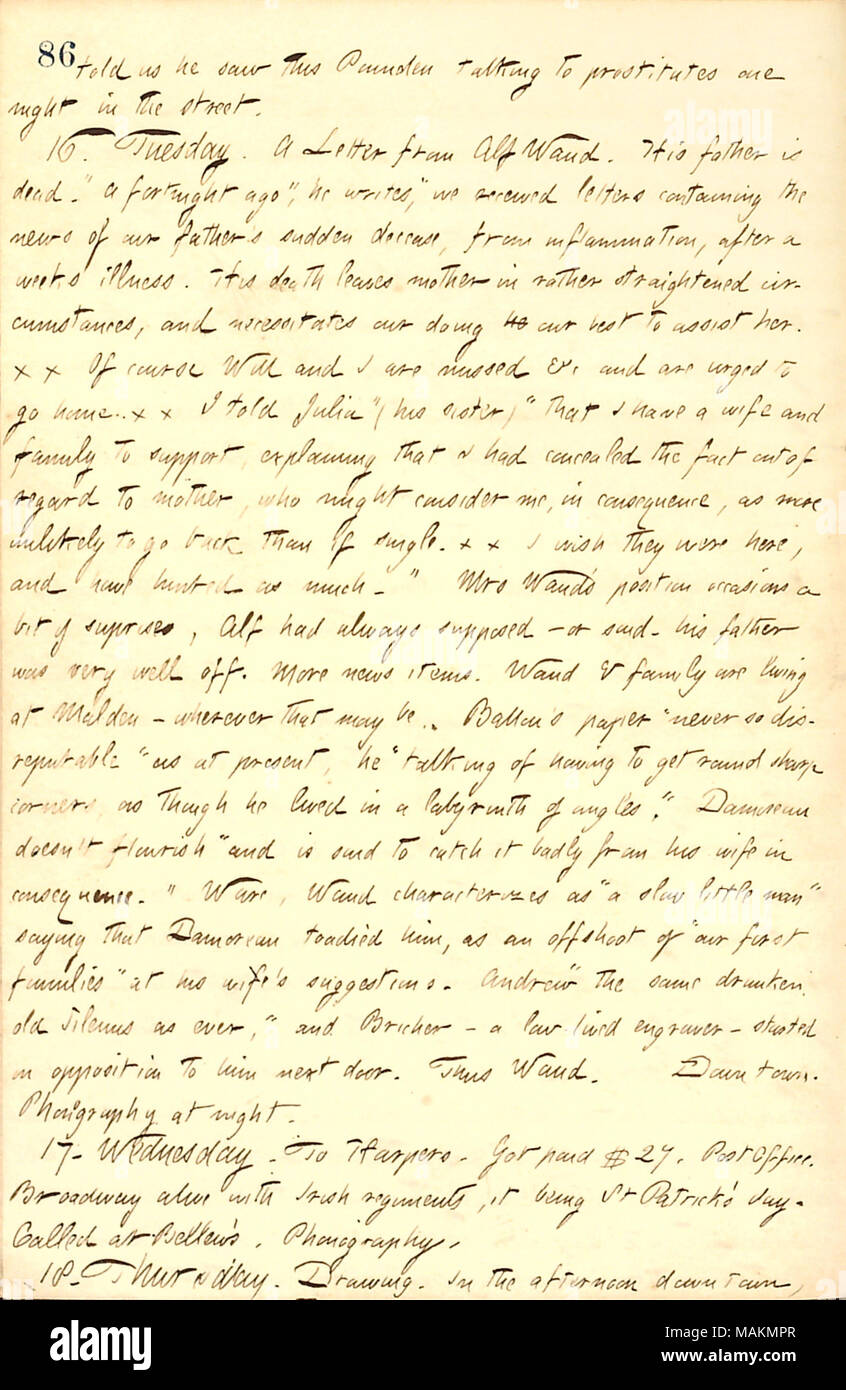 86
told us he saw this Pounden talking to prostitutes one
night in the street.
16. Tuesday. A Letter from Alf Waud. His father is
dead. "A fortnight ago", he writes, "we received letters containing the
news of our father's sudden decease, from inflammation, after a
weeks illness. His death leaves mother in rather straightened cir-
cumstances, and necessitates our doing our best to assist her.
x x Of course Will and I are missed &c and are urged to
go home. x x I told Julia" (his sister) "that I have a wife and
family to support, explaining that I had concealed the fact out of
regard to mother, who might consider me, in consequence, as more
unlikely to go back than if single. x x I wish they were here,
and have hinted as much." Mrs Waud's position occasions a
bit of suprise, Alf had always supposed – or said – his father
was very well off. More news items. Waud & family are living
at Malden – wherever that may be. Ballou's paper "never so dis-
reputable" as at present, he "talking of having to get round sharp
corners, as though he lived in a labyrinth of angles." Damoreau
doesn't flourish "and is said to catch it badly from his wife in
consequence." Ware, Waud characterizes as "a slow little man"
saying that Damoreau toadied him, as an offshoot of "our first
families" at his wife's suggestions. Andrew "the same drunken
old Silenus as ever," and Bricher – a low lived engraver – started
in opposition to him next door. Thus Waud. Down town.
Phonography at night.
17. Wednesday. To Harpers. Got paid $27. Post Office.
Broadway alive with Irish regiments, it being St Patrick's day.
Called at Bellew's. Phonography.
18. Thursday. Drawing. In the afternoon down town,
alamy
alamy
Image ID: MAKMPR
www.alamy.com